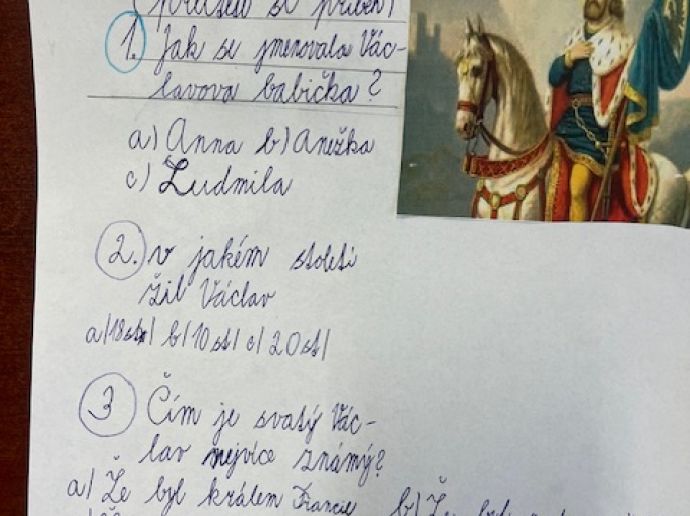 (přečteš si příběh)
1. Jak se jmenovala Vác-
lavova babička?
a) Anna b) Anežka
c) Ludmila
2. v jakém století
žil Václav
a) 18st) b) 10st) c) 20st)
3 Čím je svatý Vác-
lav nejvíce známý?
a) Že byl králem Francie b) Že byl